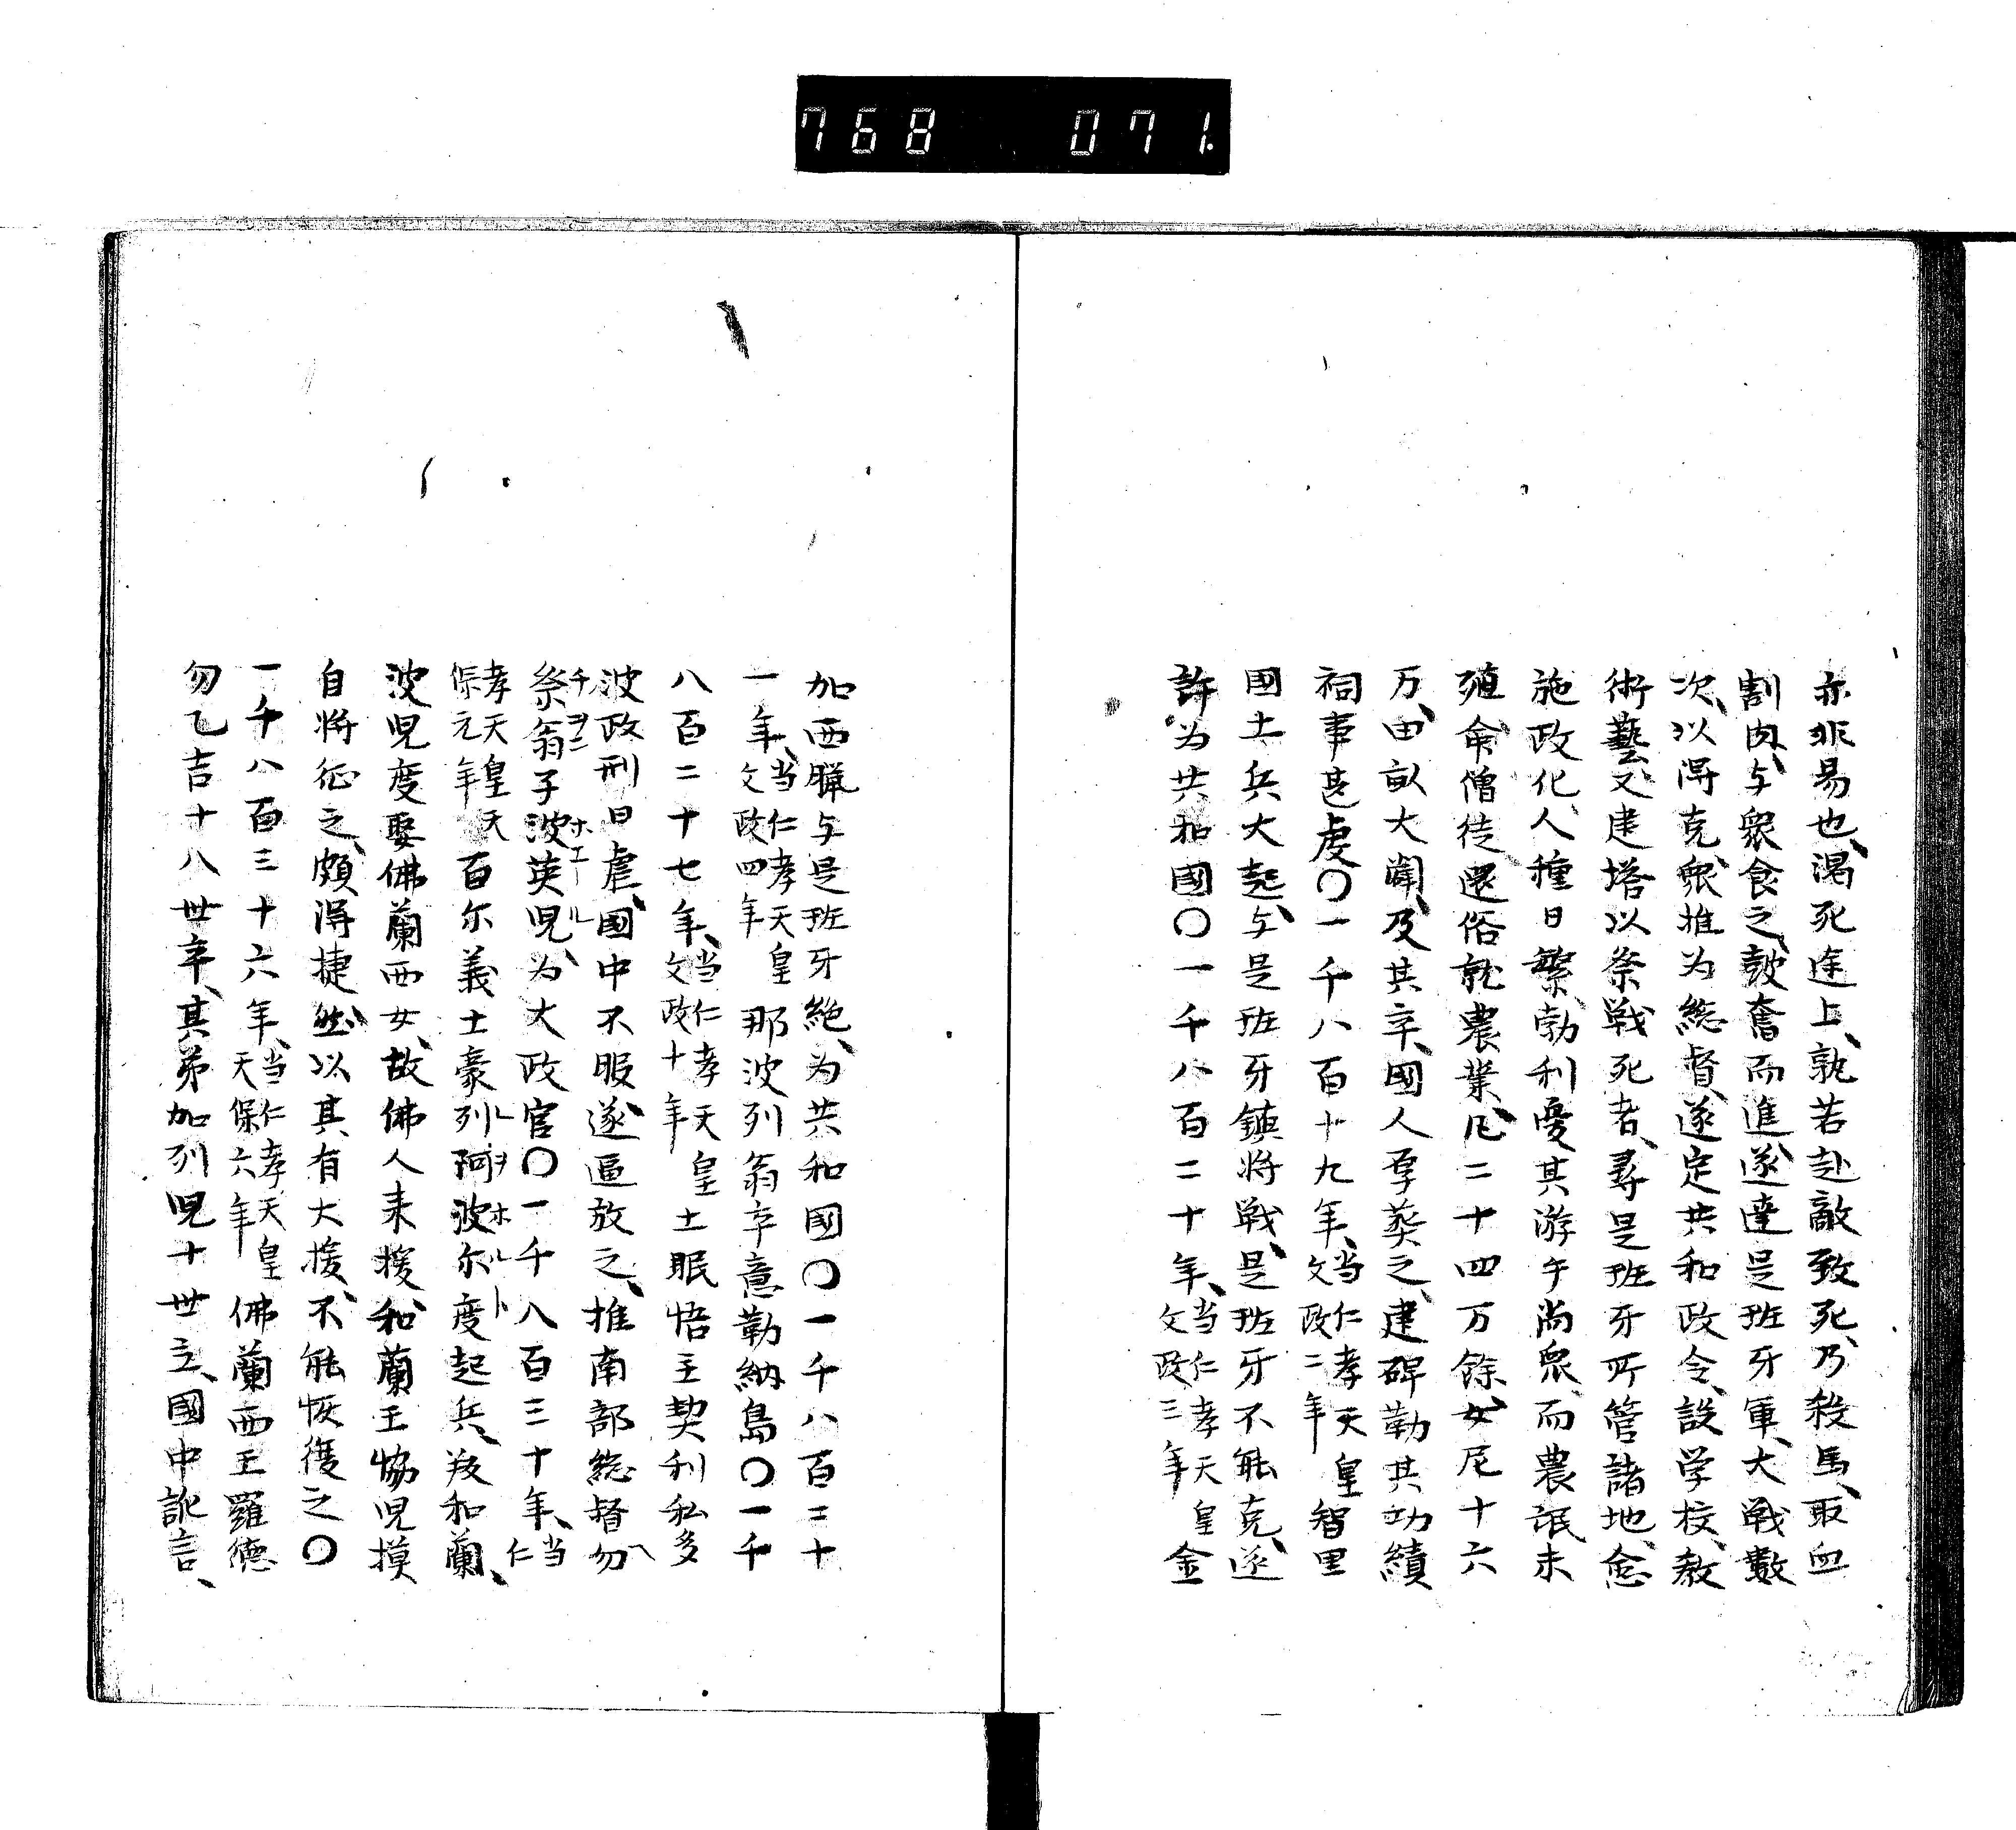 768 071.
亦非易也、渴死途上、孰若赴敵致死、乃殺馬、取血
割肉、与衆食之、皷奮而進、遂達是班牙軍、大戦數
次、以得克、衆推为総督、遂定共和政令、設学校、教
術藝、又建塔以祭戦死者、尋是班牙所管諸地、悉
施政化、人種日繁、勃利憂其游手尚衆、而農氓未
殖、命僧徒還俗就農業、凡二十四万餘、女尼十六
万、由畝大闢、及其卒、國人厚葬之、建碑勒其功績
祠事甚虔〇一千八百十九年、当仁孝天皇文政二年智里
國土兵大起、与是班牙鎮将戦、是班牙不能克、遂
許为共和國〇一千八百二十年、当仁孝天皇文政三年金
加西臘与是班牙絶、为共和國〇一千八百二十
一年、当仁孝天皇文政四年那波列翁卒意勒納島〇一千
八百二十七年、当仁孝天皇文政十年土眠悟主契利私多
波政刑日虐、國中不服、遂逼放之、推南部総督勿
祭翁子波英児、为大政官〇一千八百三十年、当仁
孝天皇天保元年百尓義士豪列阿波尓度起兵、叛和蘭、
波児度娶佛蘭西女、故佛人来援、和蘭王協児摸
自将征之、頗得捷、然以其有大援、不能恢復之〇
一千八百三十六年、当仁孝天皇天保六年佛蘭西王羅徳
勿乙吉十八世卒、其弟加列児十世立、國中訛言、